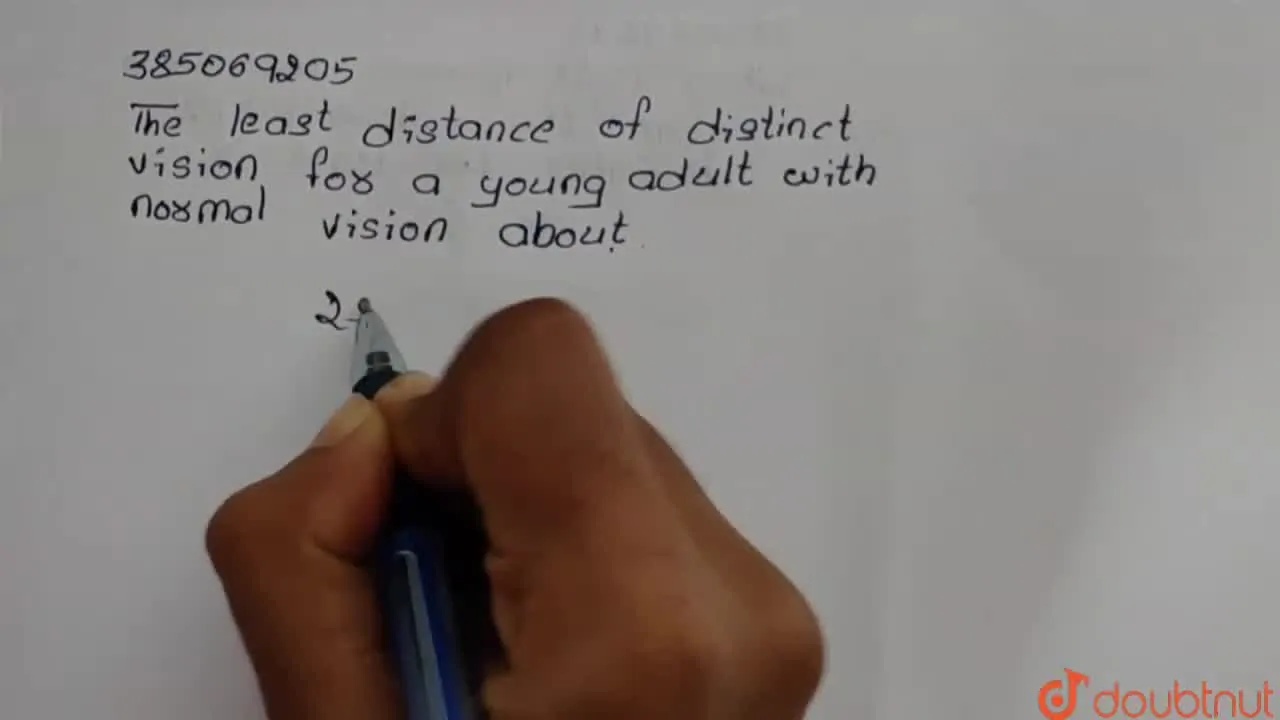 385069205
The least distance of distinct
vision for a young adult with
normal vision about
2
doubtnut